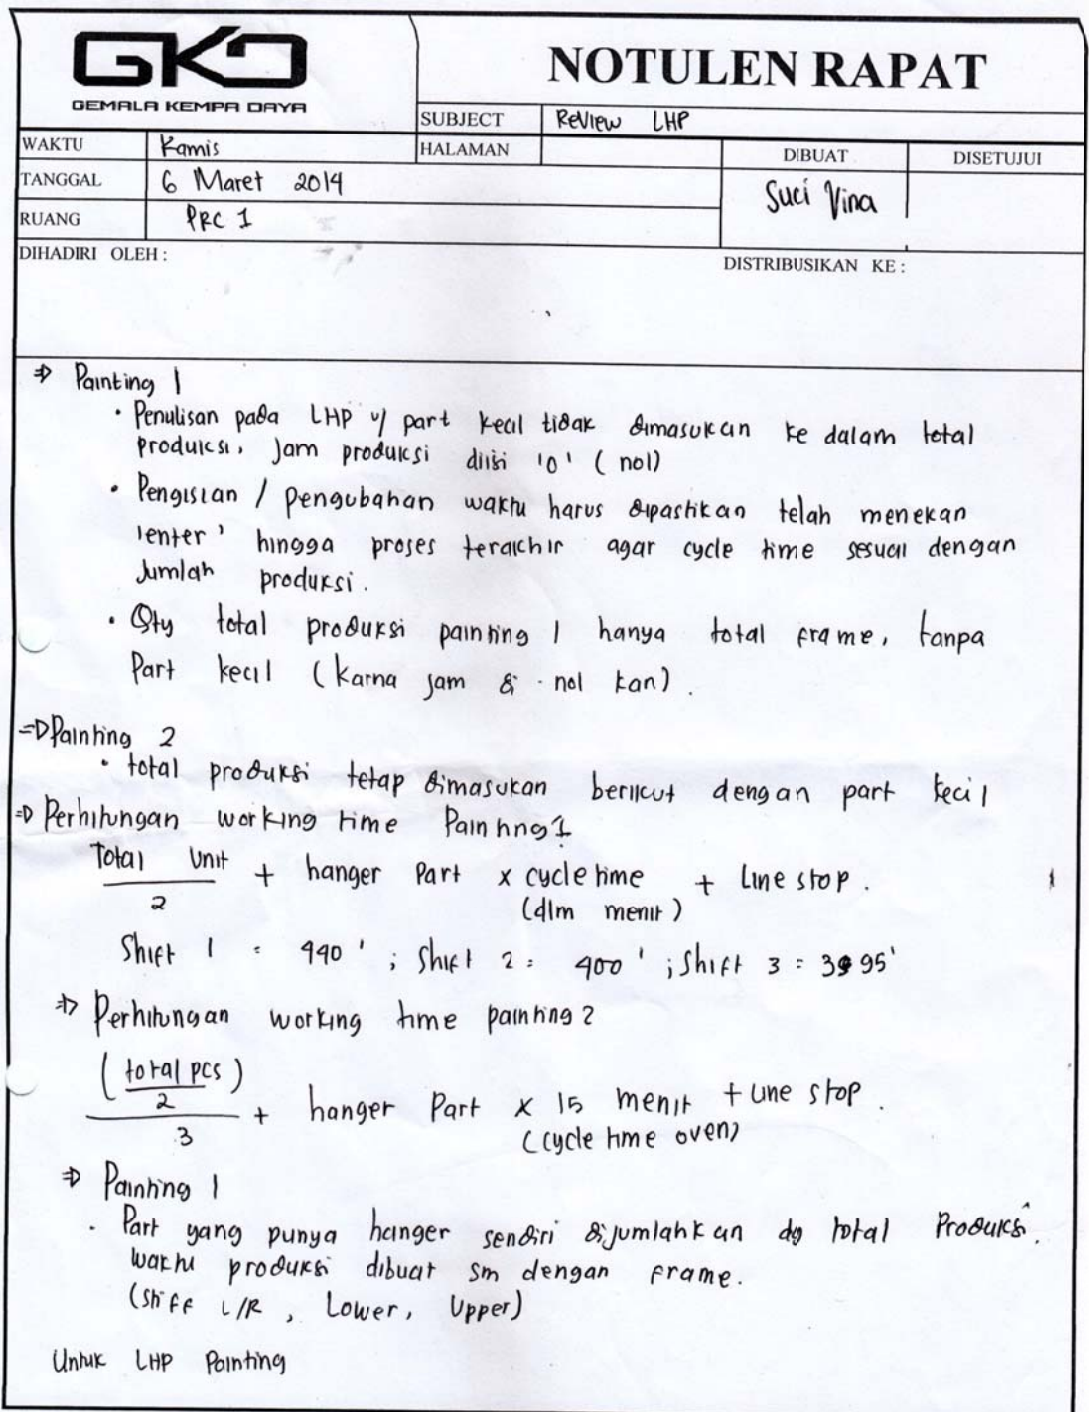 GKD
GEMALA KEMPA DAYA
NOTULEN RAPAT
SUBJECT Review LHP
WAKTU Kamis
HALAMAN
DIBUAT DISETUJUI
TANGGAL 6 Maret 2014
Suci Vina
RUANG PRC 1
DIHADIRI OLEH :
DISTRIBUSIKAN KE :
⇒ Painting 1
• Penulisan pada LHP u/ part kecil tidak dimasukan ke dalam total
produksi, jam produksi diisi '0' (nol)
• Pengisian / pengubahan waktu harus dipastikan telah menekan
'enter' hingga proses terakhir agar cycle time sesuai dengan
Jumlah produksi.
• Qty total produksi painting 1 hanya total frame, tanpa
Part kecil (karna jam di nol kan).
⇒ Painting 2
• total produksi tetap dimasukan berikut dengan part kecil
⇒ Perhitungan working time Painting 1
Total Unit + hanger Part x cycle time + Line stop.
2 (dlm menit)
Shift 1 = 440 ' ; Shift 2 = 400 ' ; Shift 3 = 395'
⇒ Perhitungan working time painting 2
(total pcs)
2 + hanger Part x 15 menit + Line stop.
3 (cycle time oven)
⇒ Painting 1
• Part yang punya hanger sendiri dijumlahkan dg total Produksi.
waktu produksi dibuat sm dengan frame.
(Stiff L/R, Lower, Upper)
Untuk LHP Painting